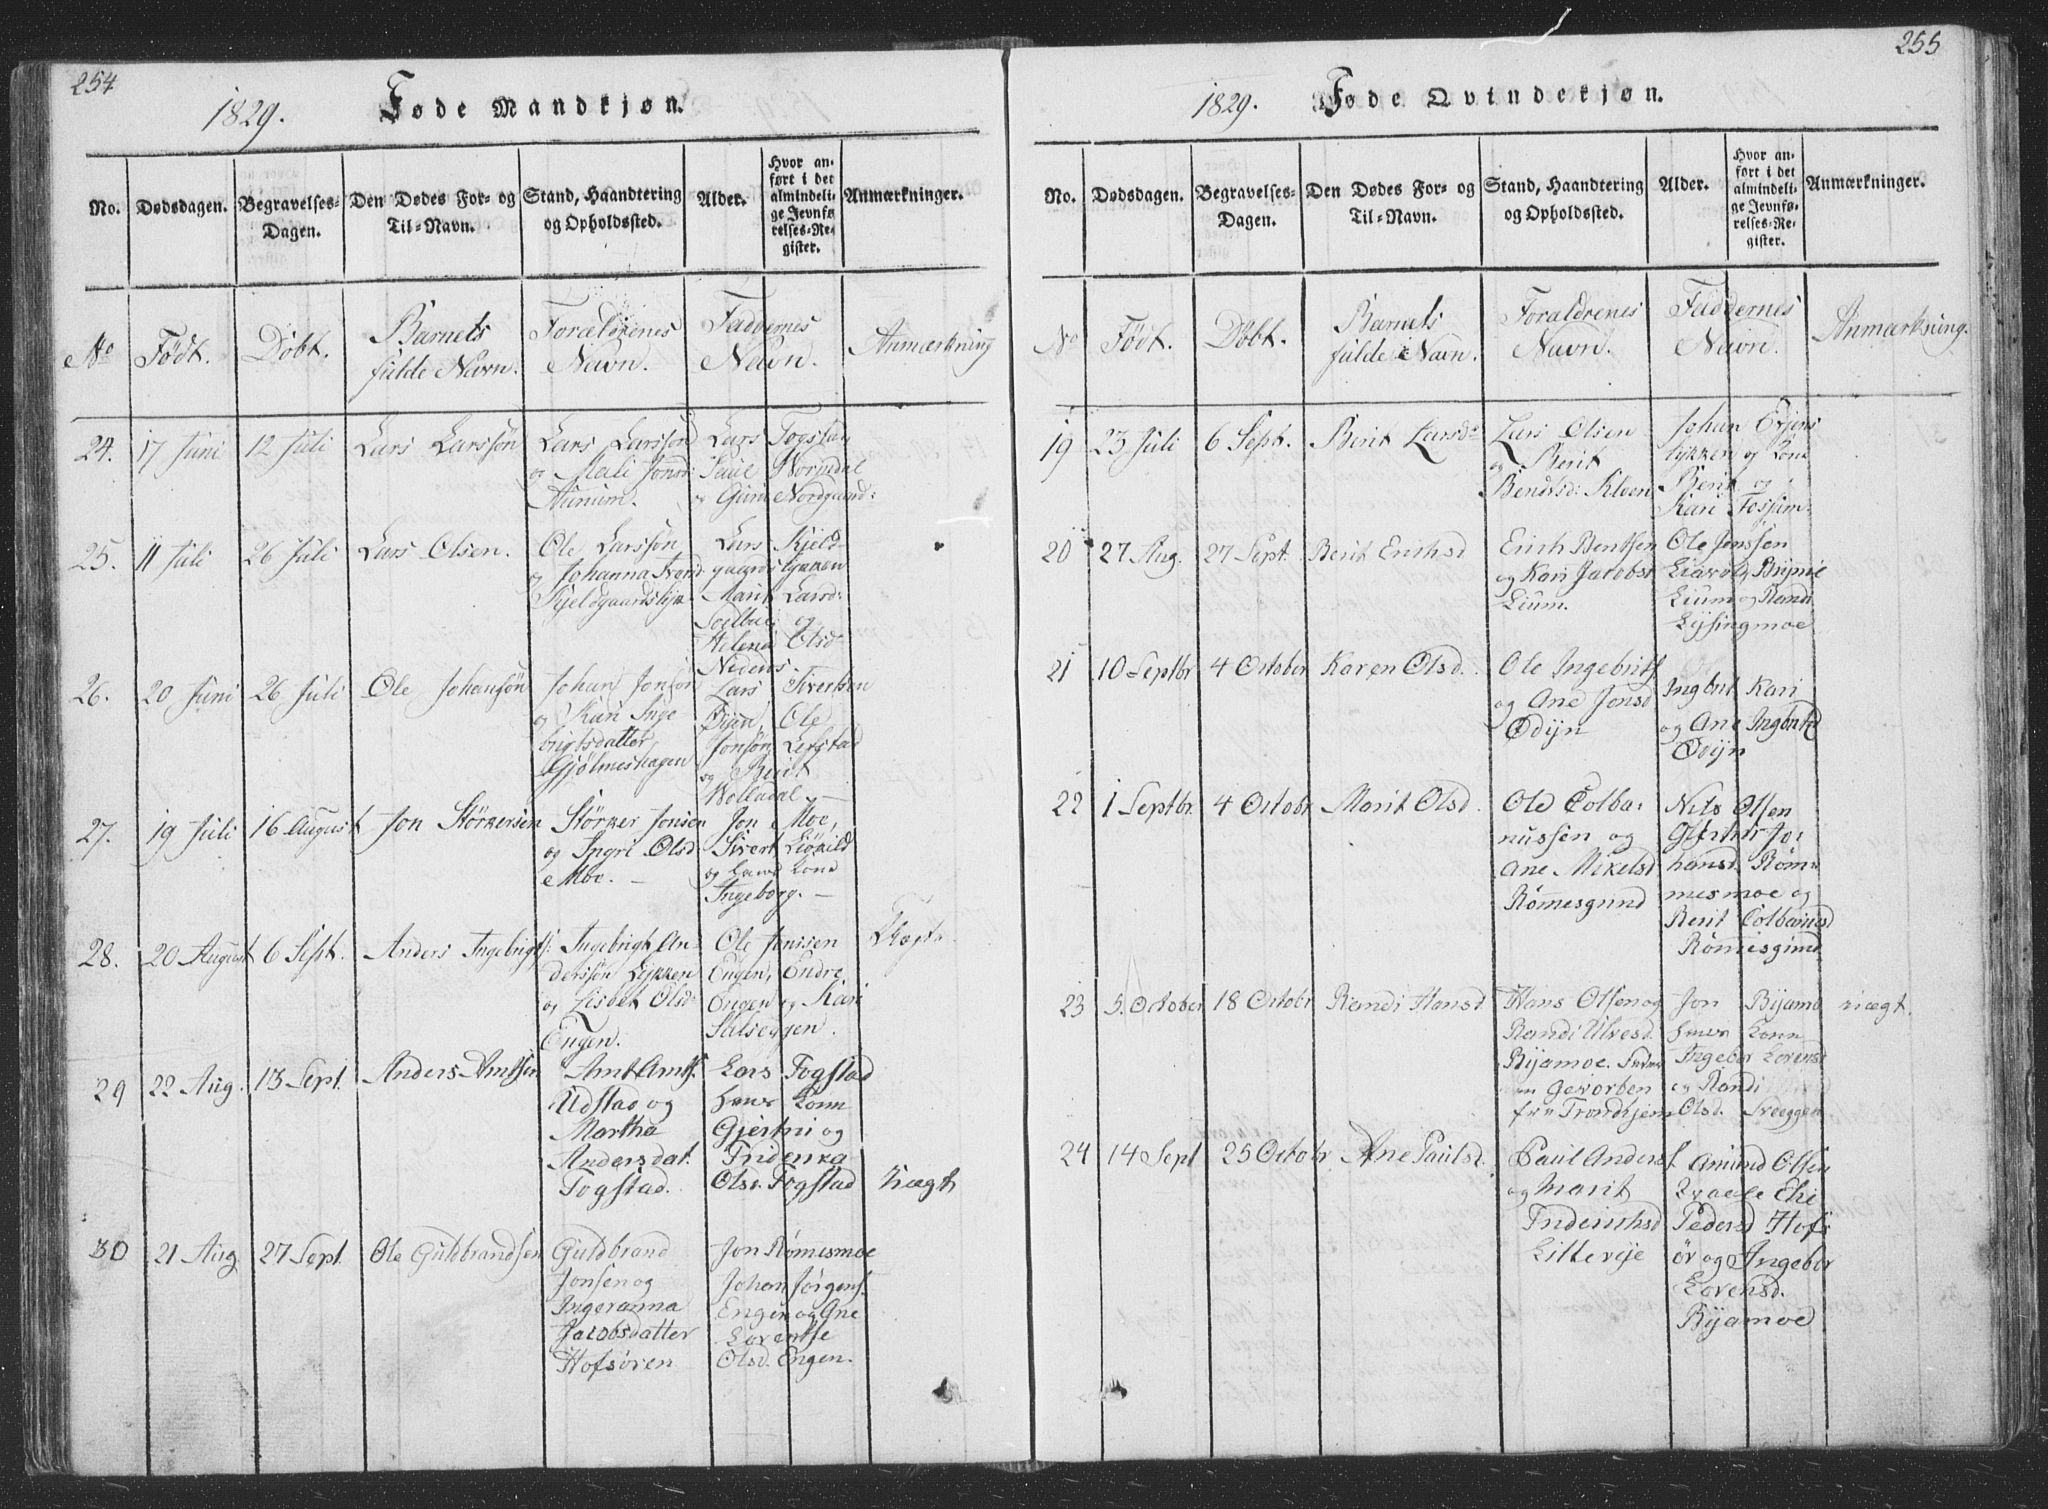 254
1829. Føde Mandkjøn.
No. Dødsdagen. Begravelses-Dagen. Den Dødes For- og Til-Navn. Stand, Haandtering og Opholdssted. Alder. Hvor anført i det almindelige Jevnførelses-Register. Anmærkninger.
No Født. Døbt. Barnets fulde Navn. Forældrenes Navn. Faddernes Navn. Anmærkning
24. 17 Juni 12 Juli Lars Larssøn
Lars Larssøn
og Mali Jonsd:
Lars Fogstad
og Guru Nordgaard:
25. 11 Juli 26 Juli Lars Olsen.
Ole Larssøn
og Johanna
Lars Kjeld-
gaardslykken
Marit Larsd:
og
Helena Olsd
26. 20 Juni 26 Juli Ole Johansøn
Johan Jonsøn
og Kari Inge
brigtsdatter
Gjølmeshagen
Lars Sivertsen
Ole
Jonsøn
og Berit
27. 19 Juli 16 August Jon Størkersen
Størker Jonsen
og Ingri Olsd
Moe.
Jon Moe,
Sivert
og hans Kone
Ingeborg.
28. 20 August 6 Sept. Anders Ingebrigts:
Ingebrigt An-
derssøn Lykken
og Lisbet Olsd
Engen.
Ole Jonssen
Engen, Endre
Engen og Kari
Salseggen.
29 22 Aug. 13 Sept. Anders Arntsen
Arnt Arnts.
Udstad og
Martha
Andersdat.
Fogstad.
Lars Fogstad
hans Konn
Gjertru og
Friderica
Olsd. Fogstad
uægt
30 21 Aug. 27 Sept. Ole Guldbrandsen
Guldbrand
Jonsen og
Ingeranna
Jacobsdatter
Hofsøren
Jon Rømesmoe
Johan Jørgens.
Engen og Ane
Lorentse
Olsd. Engen.
255
1829. Føde Qvindekjøn.
No. Dødsdagen. Begravelses-Dagen. Den Dødes For- og Til-Navn. Stand, Haandtering og Opholdssted. Alder. Hvor anført i det almindelige Jevnførelses-Register. Anmærkninger.
No Født. Døbt. Barnets fulde Navn. Forældrenes Navn. Faddernes Navn. Anmærkning.
19 23 Juli 6 Sept. Berit Larsd
Lars Olsen
og Berit
Bendtsd:
Johan
lykken og Kone
Berit og
Kari
20 27 Aug. 27 Sept. Berit Erichsd
Erich Bentsen
og Kari Jacobsd
Lium.
Ole Jonssen
Lium og Randi
Lysingmoe
21 10 Septbr 4 October Karen Olsd.
Ole Ingebrits.
og Ane Jonsd
Ødijn
Ingbrit Kari
og Ane Ingbrits
Ødijn
22 1 Septbr. 4 Octobr Marit Olsd.
Ole Colba-
nussen og
Ane Mikelsd
Rømesgrund
Nils Olsen
Gjertrir Jo-
hansd. Røm-
mesmoe og
Berit Colbanusd
Rømmesgrund
23 5. October 18 Octobr Randi Hansd.
Hans Olsen og
Randi Ulvesd.
Bijamoe.
geworben
fra Trondhjem
Jon Bijamo
hans Konn
Ingebor Lorentsd
og Randi
Olsd. Skoeggen
uægt.
24 14 Sept 25 Octobr Ane Paulsd.
Paul Anders.
og Marit
Inderichsd
Lilleveje
Amund Olsen
Pedersd Hofs
ør og Ingebor
Lorensd.
Bijamoe